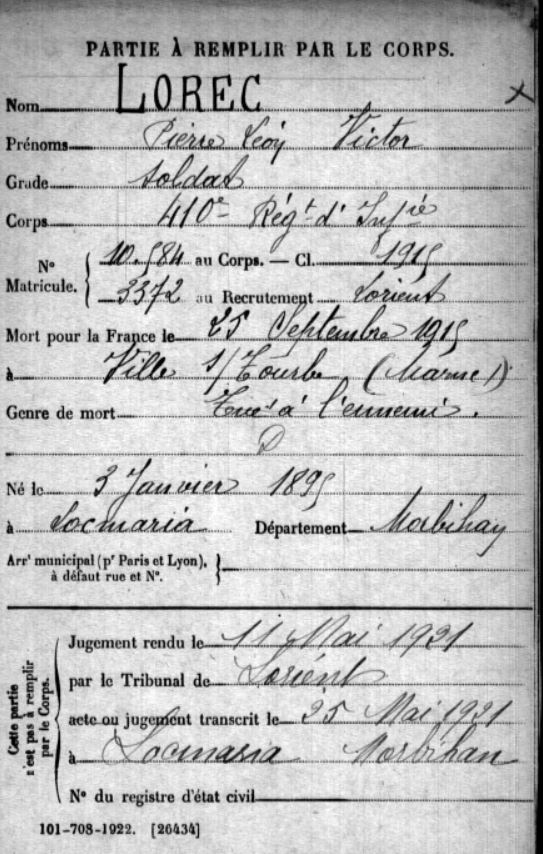 PARTIE À REMPLIR PAR LE CORPS.
Nom LOREC
Prénoms Pierre Léon Victor
Grade soldat
Corps 410e Régt d'Infie
No Matricule. { 10.584 au Corps. — Cl. 1915
3372 au Recrutement Lorient
Mort pour la France le 25 Septembre 1915
à Ville s/ Tourbe (Marne)
Genre de mort Tué à l'ennemi.
Né le 3 Janvier 1895
à Locmaria Département Morbihan
Arrt municipal (pr Paris et Lyon), }
à défaut rue et No.
Cette partie n'est pas à remplir par le Corps.
Jugement rendu le 11 Mai 1921
par le Tribunal de Lorient
acte ou jugement transcrit le 25 Mai 1921
à Locmaria Morbihan
No du registre d'état civil
101-708-1922. [26434]